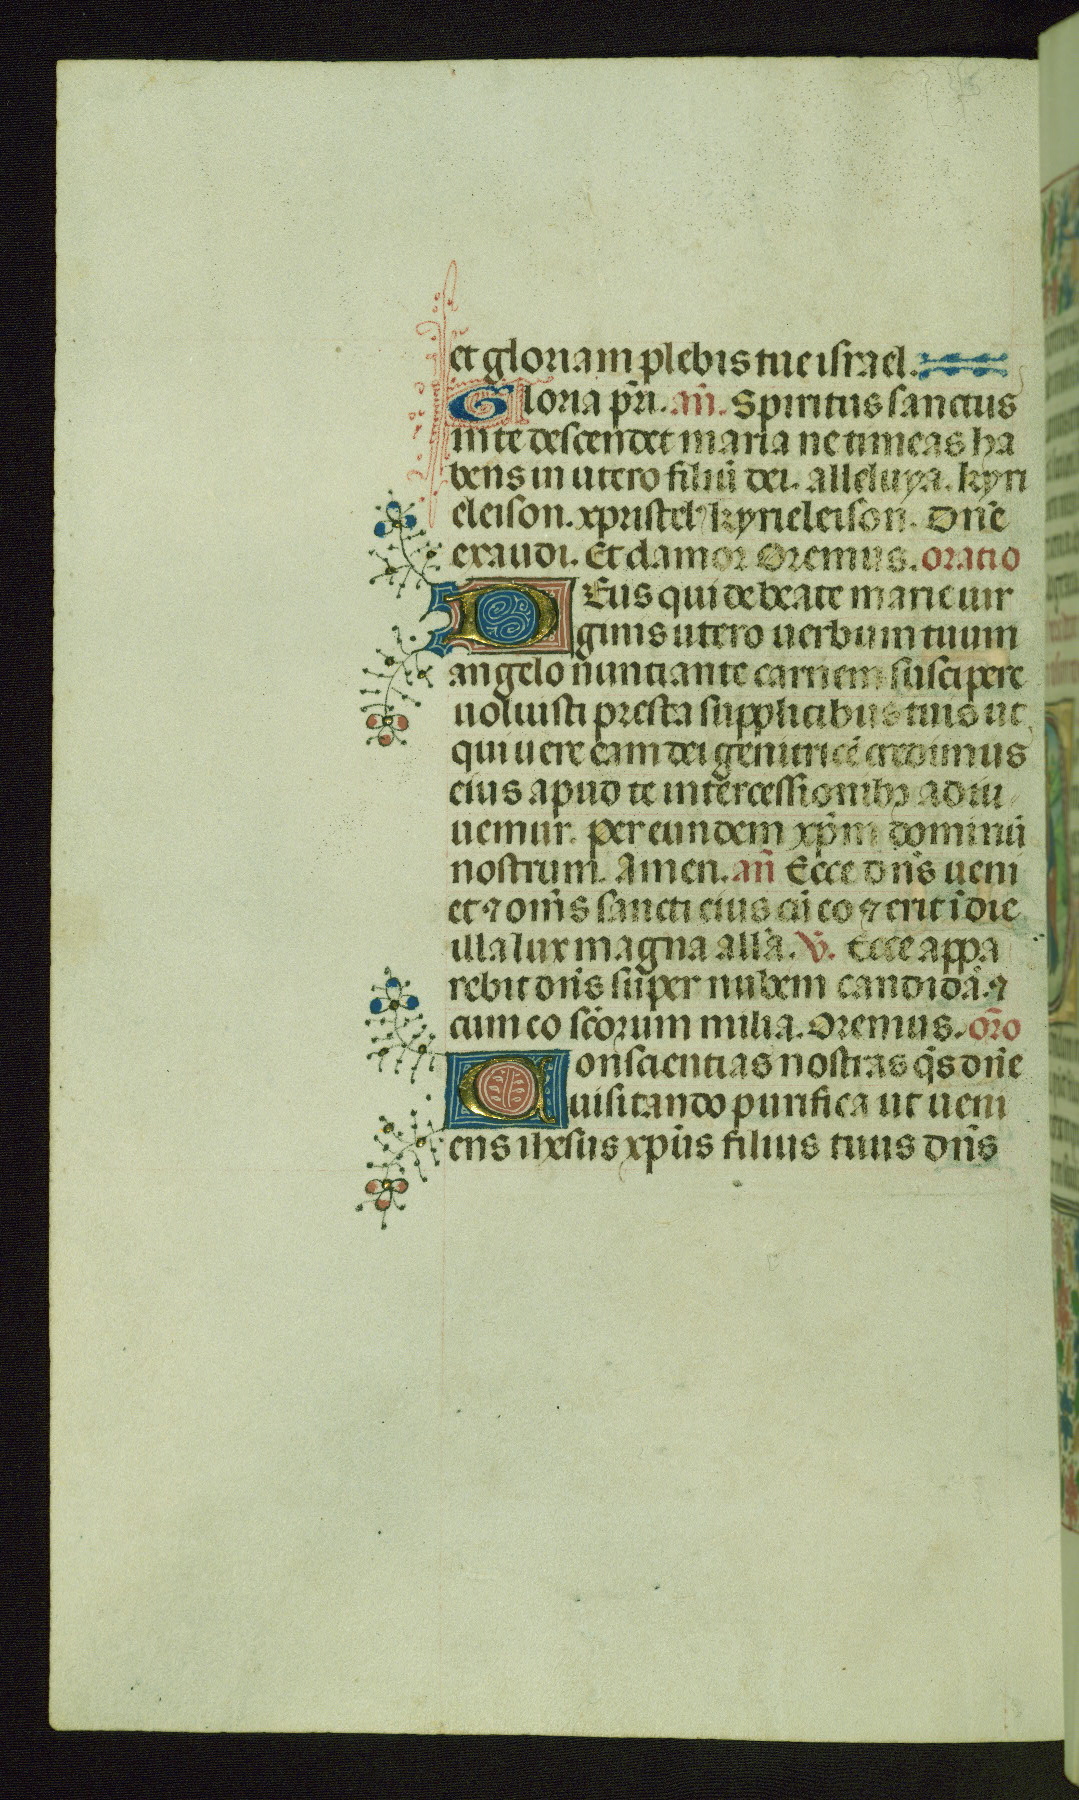 et gloriam plebis tue israel.
Gloria pr̄i. an̄. Spiritus sanctus
in te descendet maria ne timeas ha
bens in utero filiū dei. alleluya. kyri
eleison. xpristel' kyrieleison. Dn̄e
exaudi. Et clamor Oremus. oratio
DEus qui de beate marie uir
ginis utero uerbum tuum
angelo nuntiante carnem suscipere
uoluisti presta supplicibus tuis ut
qui uere eam dei genitricē credimus
eius apud te intercessionibꝫ adiu
uemur. per eundem xp̄m dominū
nostrum. Amen. an̄ Ecce dn̄s ueni
et ⁊ om̄s sancti eius cū eo ⁊ erit ī die
illa lux magna all'a. V̄. Ecce appa
rebit dn̄s super nubem candidā. ⁊
cum eo sc̄orum milia. Oremus. or̄o
Conscientias nostras q̄s dn̄e
uisitando purifica ut ueni
ens ihesus xp̄us filius tuus dn̄s